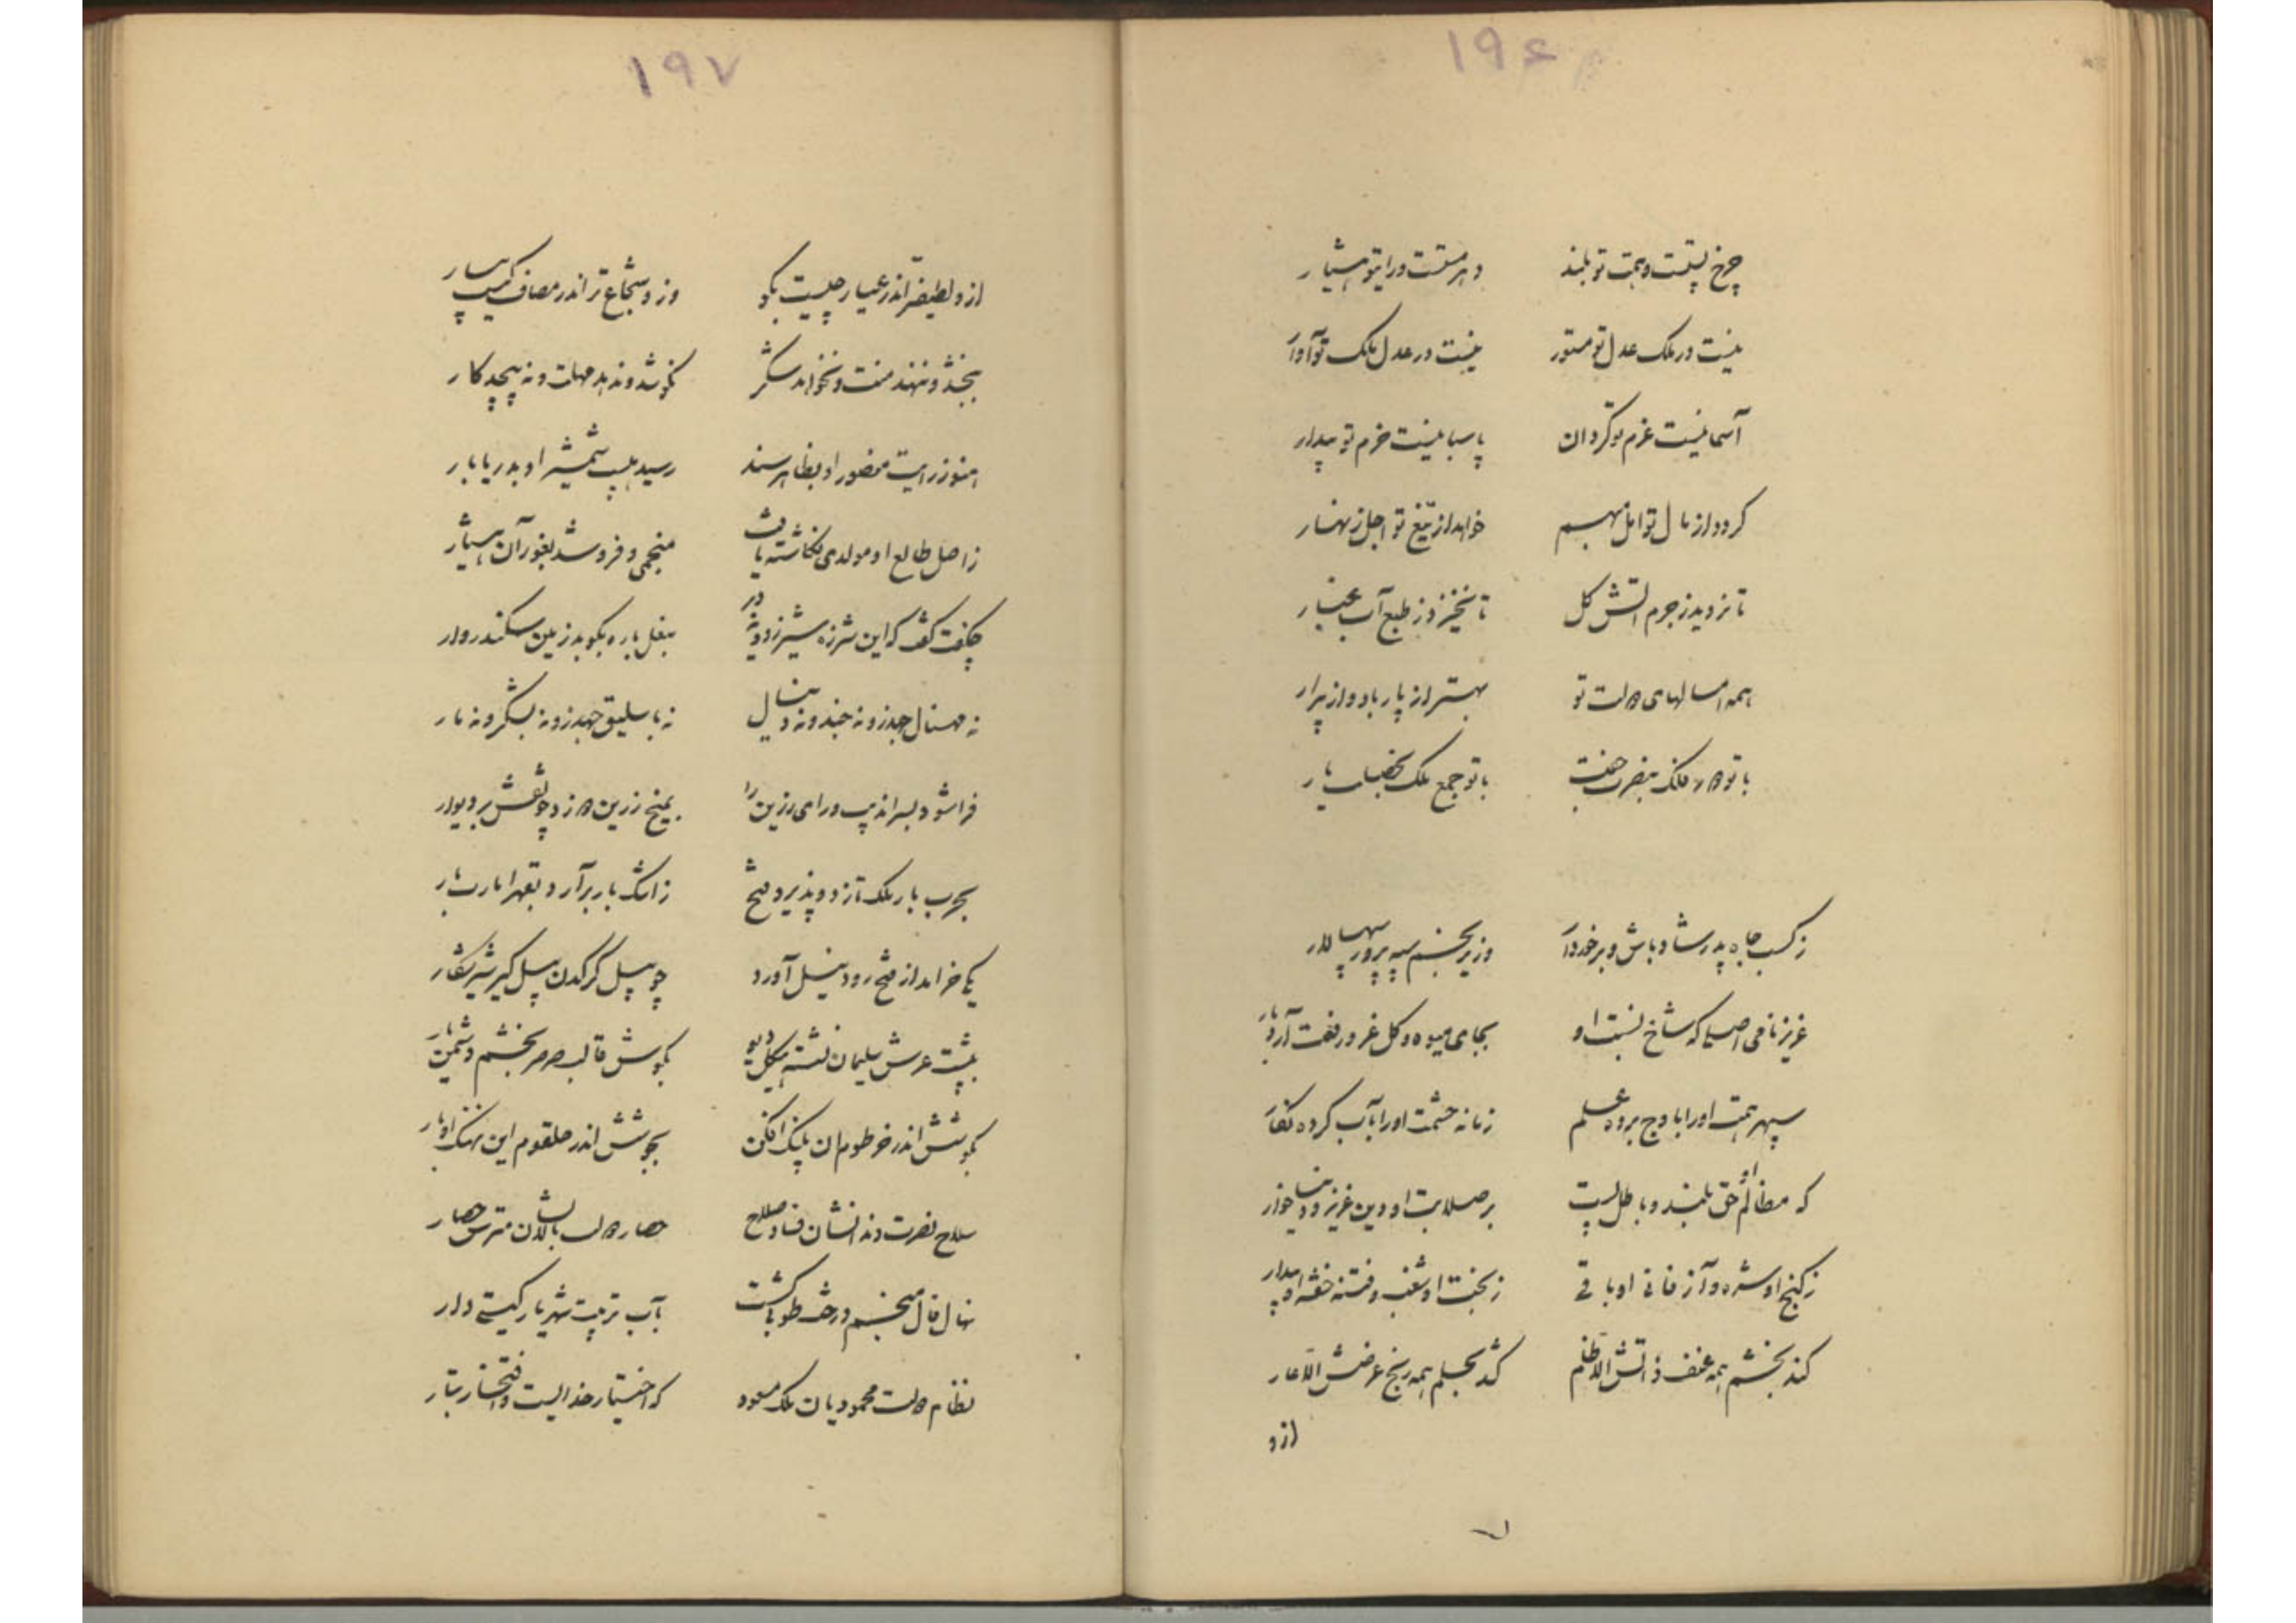 ۱۹۶
چرخ پستست و همت تو بلند دهر مستست و رای تو هشیار
نیست در ملک عدل تو مستور نیست در عدل ملک تو آوار
آسمانیست عزم تو گردان پاسبانیست حزم تو بیدار
گردد از مال تو امل بهم خواهد از تیغ تو اجل زنهار
تا نروید ز جرم آتش گل تا نخیزد ز طبع آب غبار
همه امسالهای دولت تو بهتر از پار باد و از پیرار
با تو دور فلک بنصرت جفت با تو جمع ملک بخطبت یار
ز کسب جاه پدر شاد باش و برخوردار وزیر بچشم سپه پرور سپهسالار
عزیز نامی اصلی که شاخ نسبت او بجای میوه و گل عز و رفعت آرد بار
سپهر همت او را باوج برده علم زمانه حشمت او را بآب کرده نگار
که مظالم او حق بلند و باطل پست بر صلابت او دین عزیز و دنیا خوار
ز گنج او شره و آز فانی او باقی ز بخت او شغب و فتنه خفته او بیدار
کند بخشم همه عنف ذاتش الا ظلم کشد بحلم همه رنج عرضش الا عار
ازو
۱۹۷
ازو لطیف‌تر اندر عیار چیست بگو وزو شجاع‌تر اندر مصاف کیست بیار
ببخشد و ننهد منت و نخواهد شکر بکوشد و ندهد مهلت و نپیچد کار
هنوز رایت منصور او بظاهر سند رسید هیبت شمشیر او بدریا بار
ز اصل طالع او مولدی نگاشته یافت منجمی و فرو شد بغور آن هشیار
چگفت گفت که این شرزه شیر زود نه دیر بنعل باره بکوبد زمین سکندروار
نه مهنال جهد زو نه جند و نه دنیال نه باسلیق جهد زو نه لشکر و نه بار
فرا شود بسر اندیب و رای رزین را بمیخ زرین دوزد چو نقش بر دیوار
بحرب بار ملک تازد و پذیرد فتح ز اشک بار برآرد بقهر امارت بار
یکی خرامد از فتح رود نیل آورد چو پیل گرگدن پیل گیر شیر شکار
بپشت عرش سلیمان نشسته هیکل دیو بگوش قالب صرصر بخشم دشمن‌شار
بگوشش اندر خرطوم آن پلنگ افکن بجوشش اندر حلقوم این نهنگ اوبار
سلاح نصرت دندانشان فساد و صلاح حصار دولت بالایشان مترس حصار
نهال فال منجم درخت طوبی گشت بآب تربیت شهریار گیتی‌دار
نظام دولت محمودیان ملک مسعود که اختیار خدایست و افتخار تبار